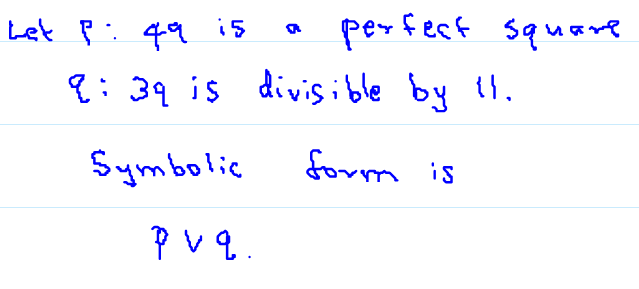 Let p: 49 is a perfect square
q: 39 is divisible by 11.
Symbolic form is
p ∨ q.